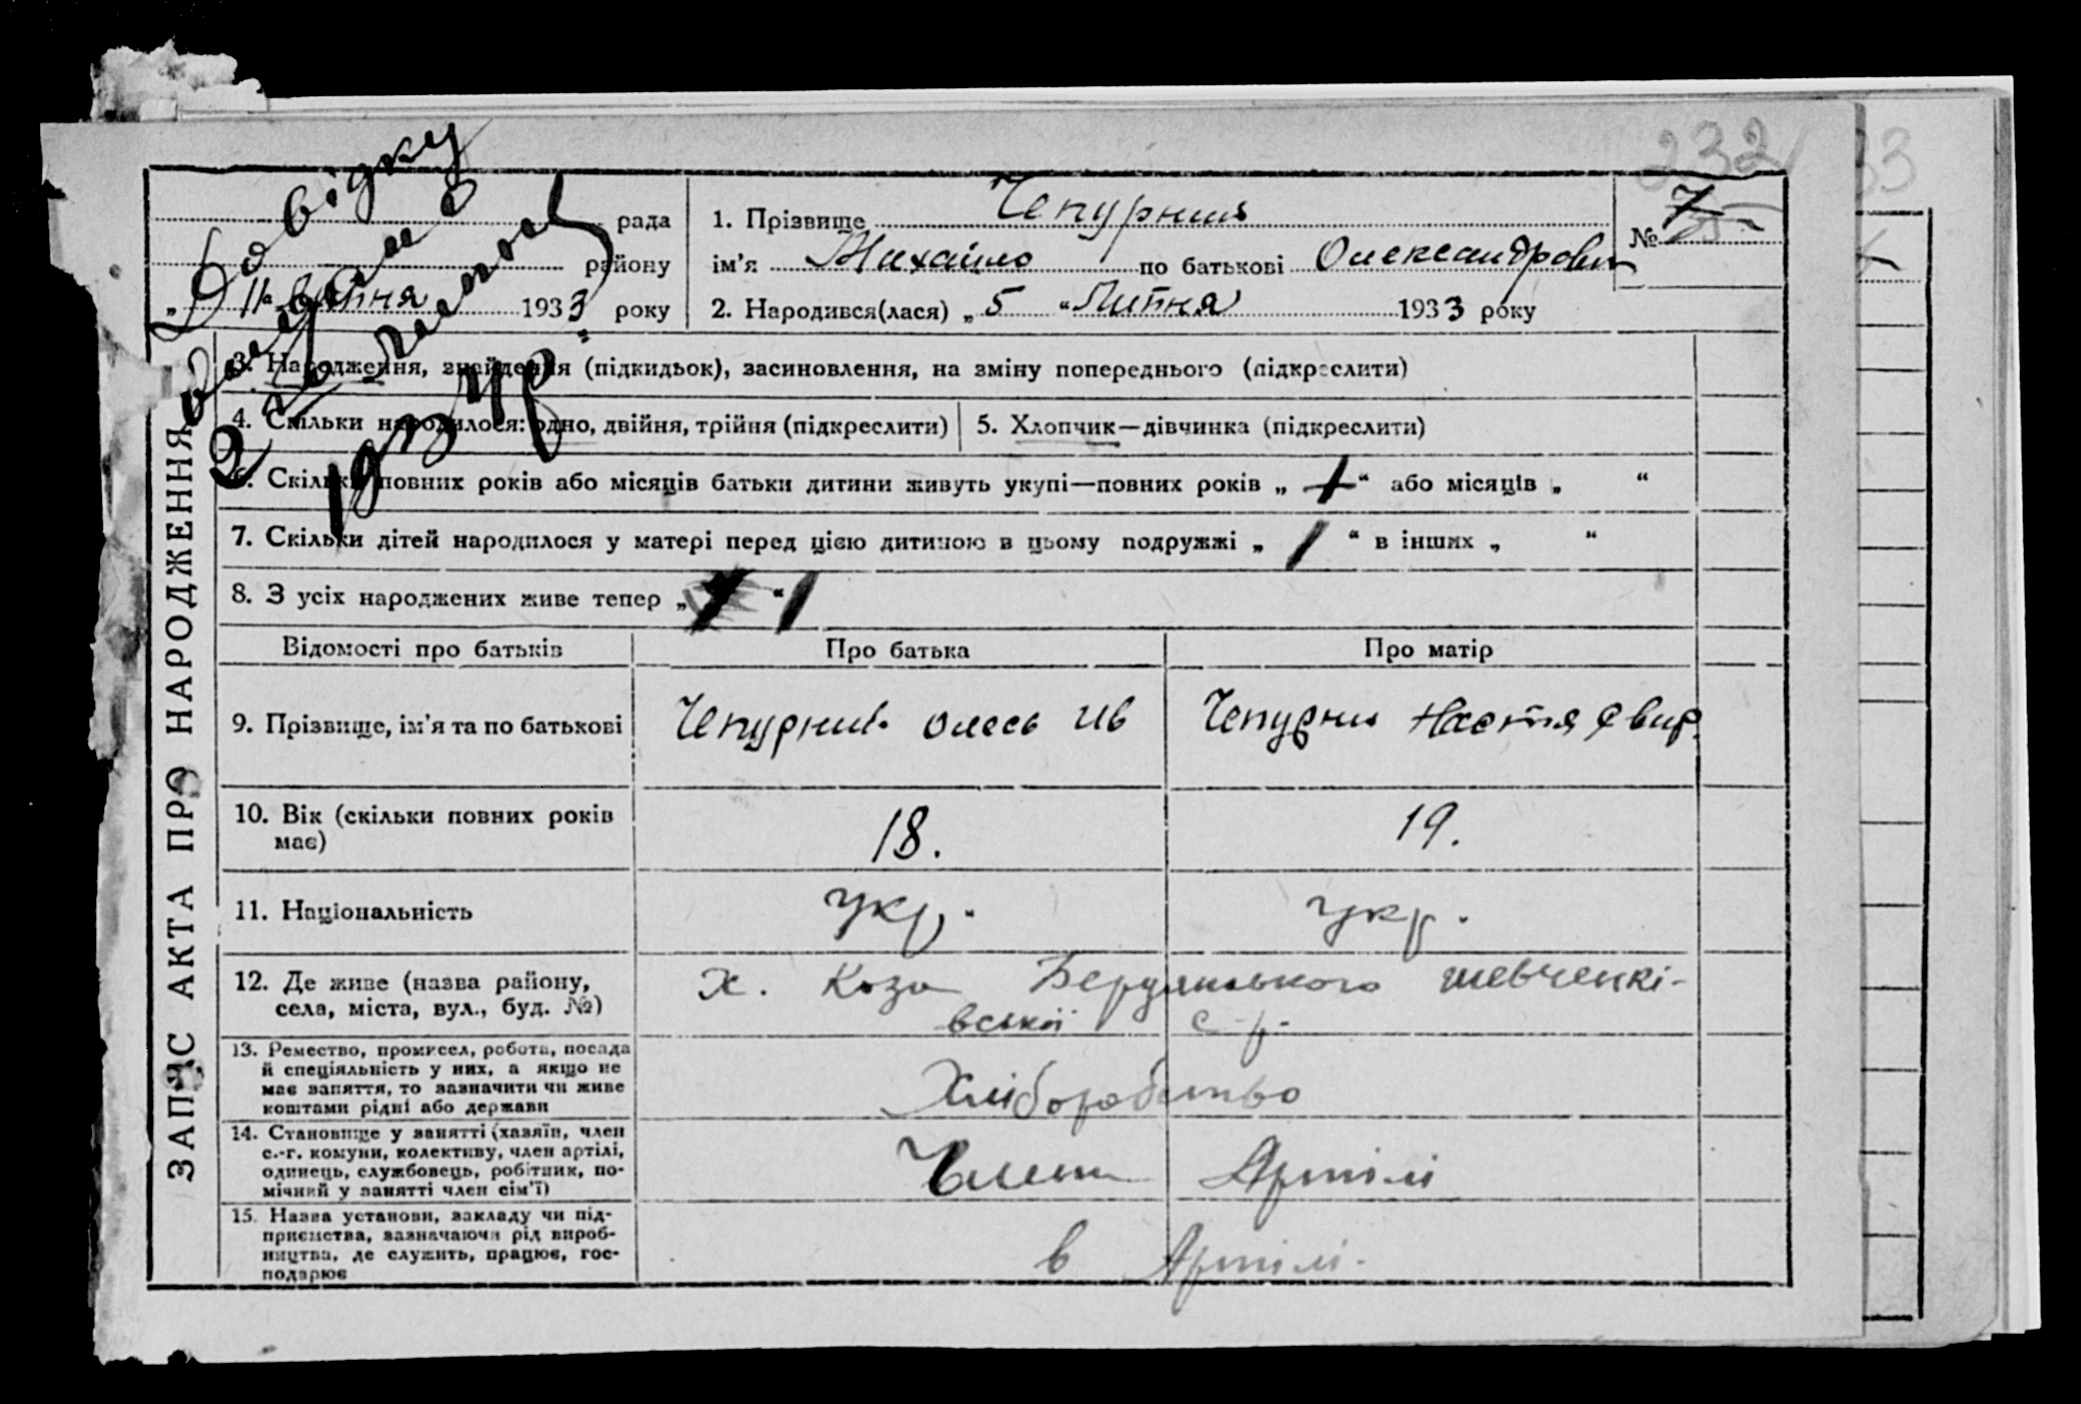 232
33
Довідку
видано
2 липня
1934 р.
рада
району
„ 11 “ липня 1933 року
1. Прізвище Чепурний
ім’я Михайло по батькові Олександрович
№ 7
2. Народився(лася) „ 5 “ Липня 1933 року
ЗАПИС АКТА ПРО НАРОДЖЕННЯ
3. Народження, знайдення (підкидьок), засиновлення, на зміну попереднього (підкреслити)
4. Скільки народилося: одно, двійня, трійня (підкреслити) 5. Хлопчик—дівчинка (підкреслити)
6. Скільки повних років або місяців батьки дитини живуть укупі—повних років „ 1 “ або місяців „ “
7. Скільки дітей народилося у матері перед цією дитиною в цьому подружжі „ 1 “ в інших „ “
8. З усіх народжених живе тепер „ “ 1
Відомості про батьків Про батька Про матір
9. Прізвище, ім’я та по батькові Чепурний Олесь Ив Чепурни Настя
10. Вік (скільки повних років має) 18. 19.
11. Національність укр. укр.
12. Де живе (назва району, х. Коза Бердянського шевченкі-
села, міста, вул., буд. №) вської с-р.
13. Ремество, промисел, робота, посада
й спеціяльність у них, а якщо не
має заняття, то зазначити чи живе
коштами рідні або держави
Хліборобство
14. Становище у занятті (хазяїн, член
с.-г. комуни, колективу, член артілі,
одинець, службовець, робітник, по-
мічний у занятті член сім’ї)
Член Артілі
15. Назва установи, закладу чи під-
приємства, зазначаючи рід вироб-
ництва, де служить, працює, гос-
подарює
в Артілі.